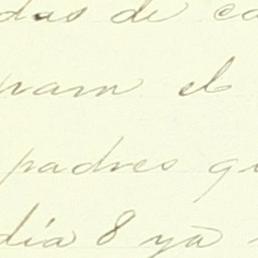 das de ca
param el
padres qu
día 8 ya